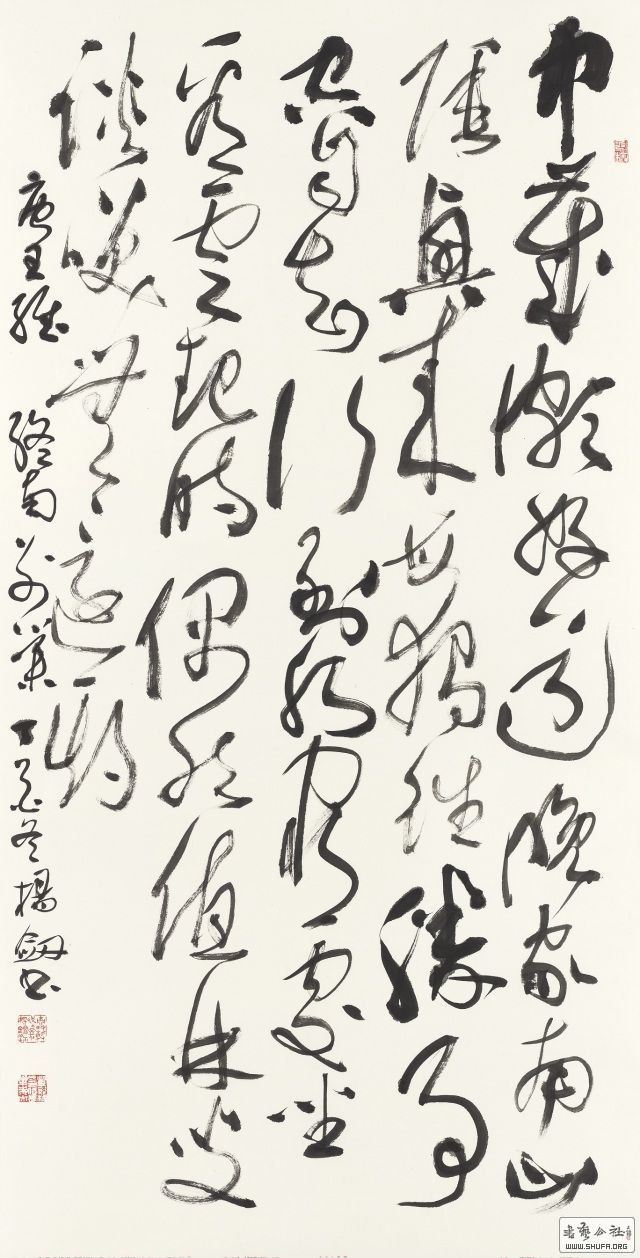 中歲頗好道晚家南山
陲興來每獨往勝事
空自知行到水窮處坐
看雲起時偶然值林叟
談笑無還期
唐王維 終南別業 丁冬楊劍書
書藝公社
WWW.SHUFA.ORG